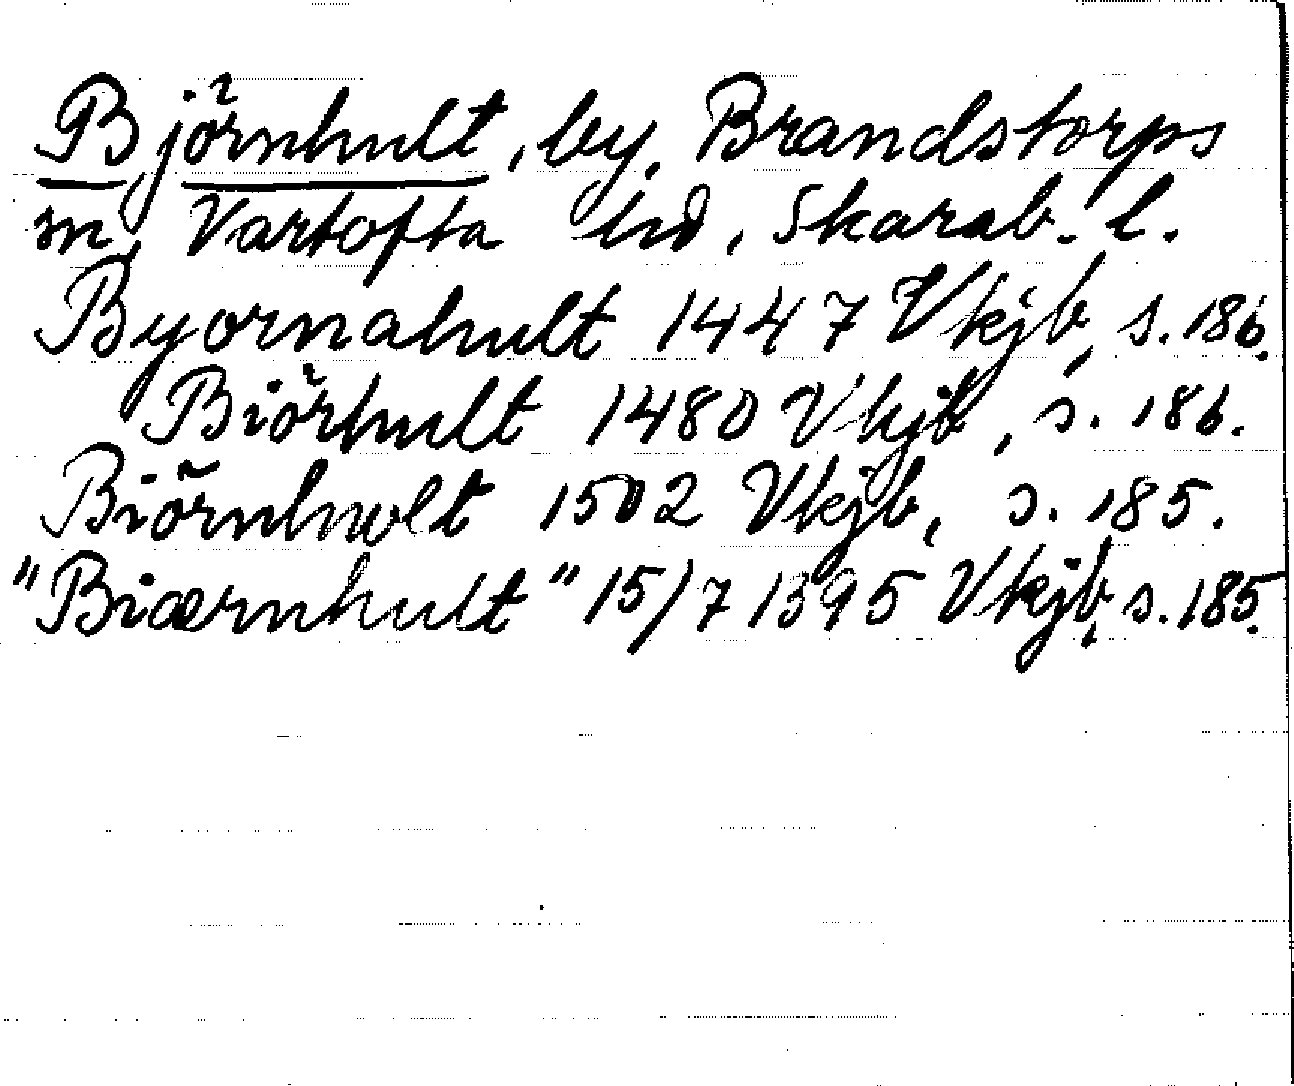 Björnhult, by. Brandstorps
sn, Vartofta hd, Skarab. l.
Byornahult 1447 Vkjb, s. 186.
Biörhult 1480 Vkjb, s. 186.
Biörnhwlt 1502 Vkjb, s. 185.
"Biærnhult" 15/7 1395 Vkjb, s. 185.